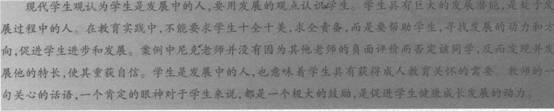 现代学生观认为学生是发展中的人,要用发展的观点认识学生。学生具有巨大的发展潜能,是处于发
展过程中的人。在教育实践中,不能要求学生十全十美,求全责备,而是要帮助学生,寻找发展的动力和方
向,促进学生进步和发展。案例中尼尼老师并没有因为其他老师的负面评价而否定该同学,反而发现并发
展他的特长,使其重获自信。学生是发展中的人,也意味着学生具有获得成人教育关怀的需要。教师的一
句关心的话语,一个肯定的眼神对于学生来说,都是一个极大的鼓励,是促进学生健康成长发展的动力。